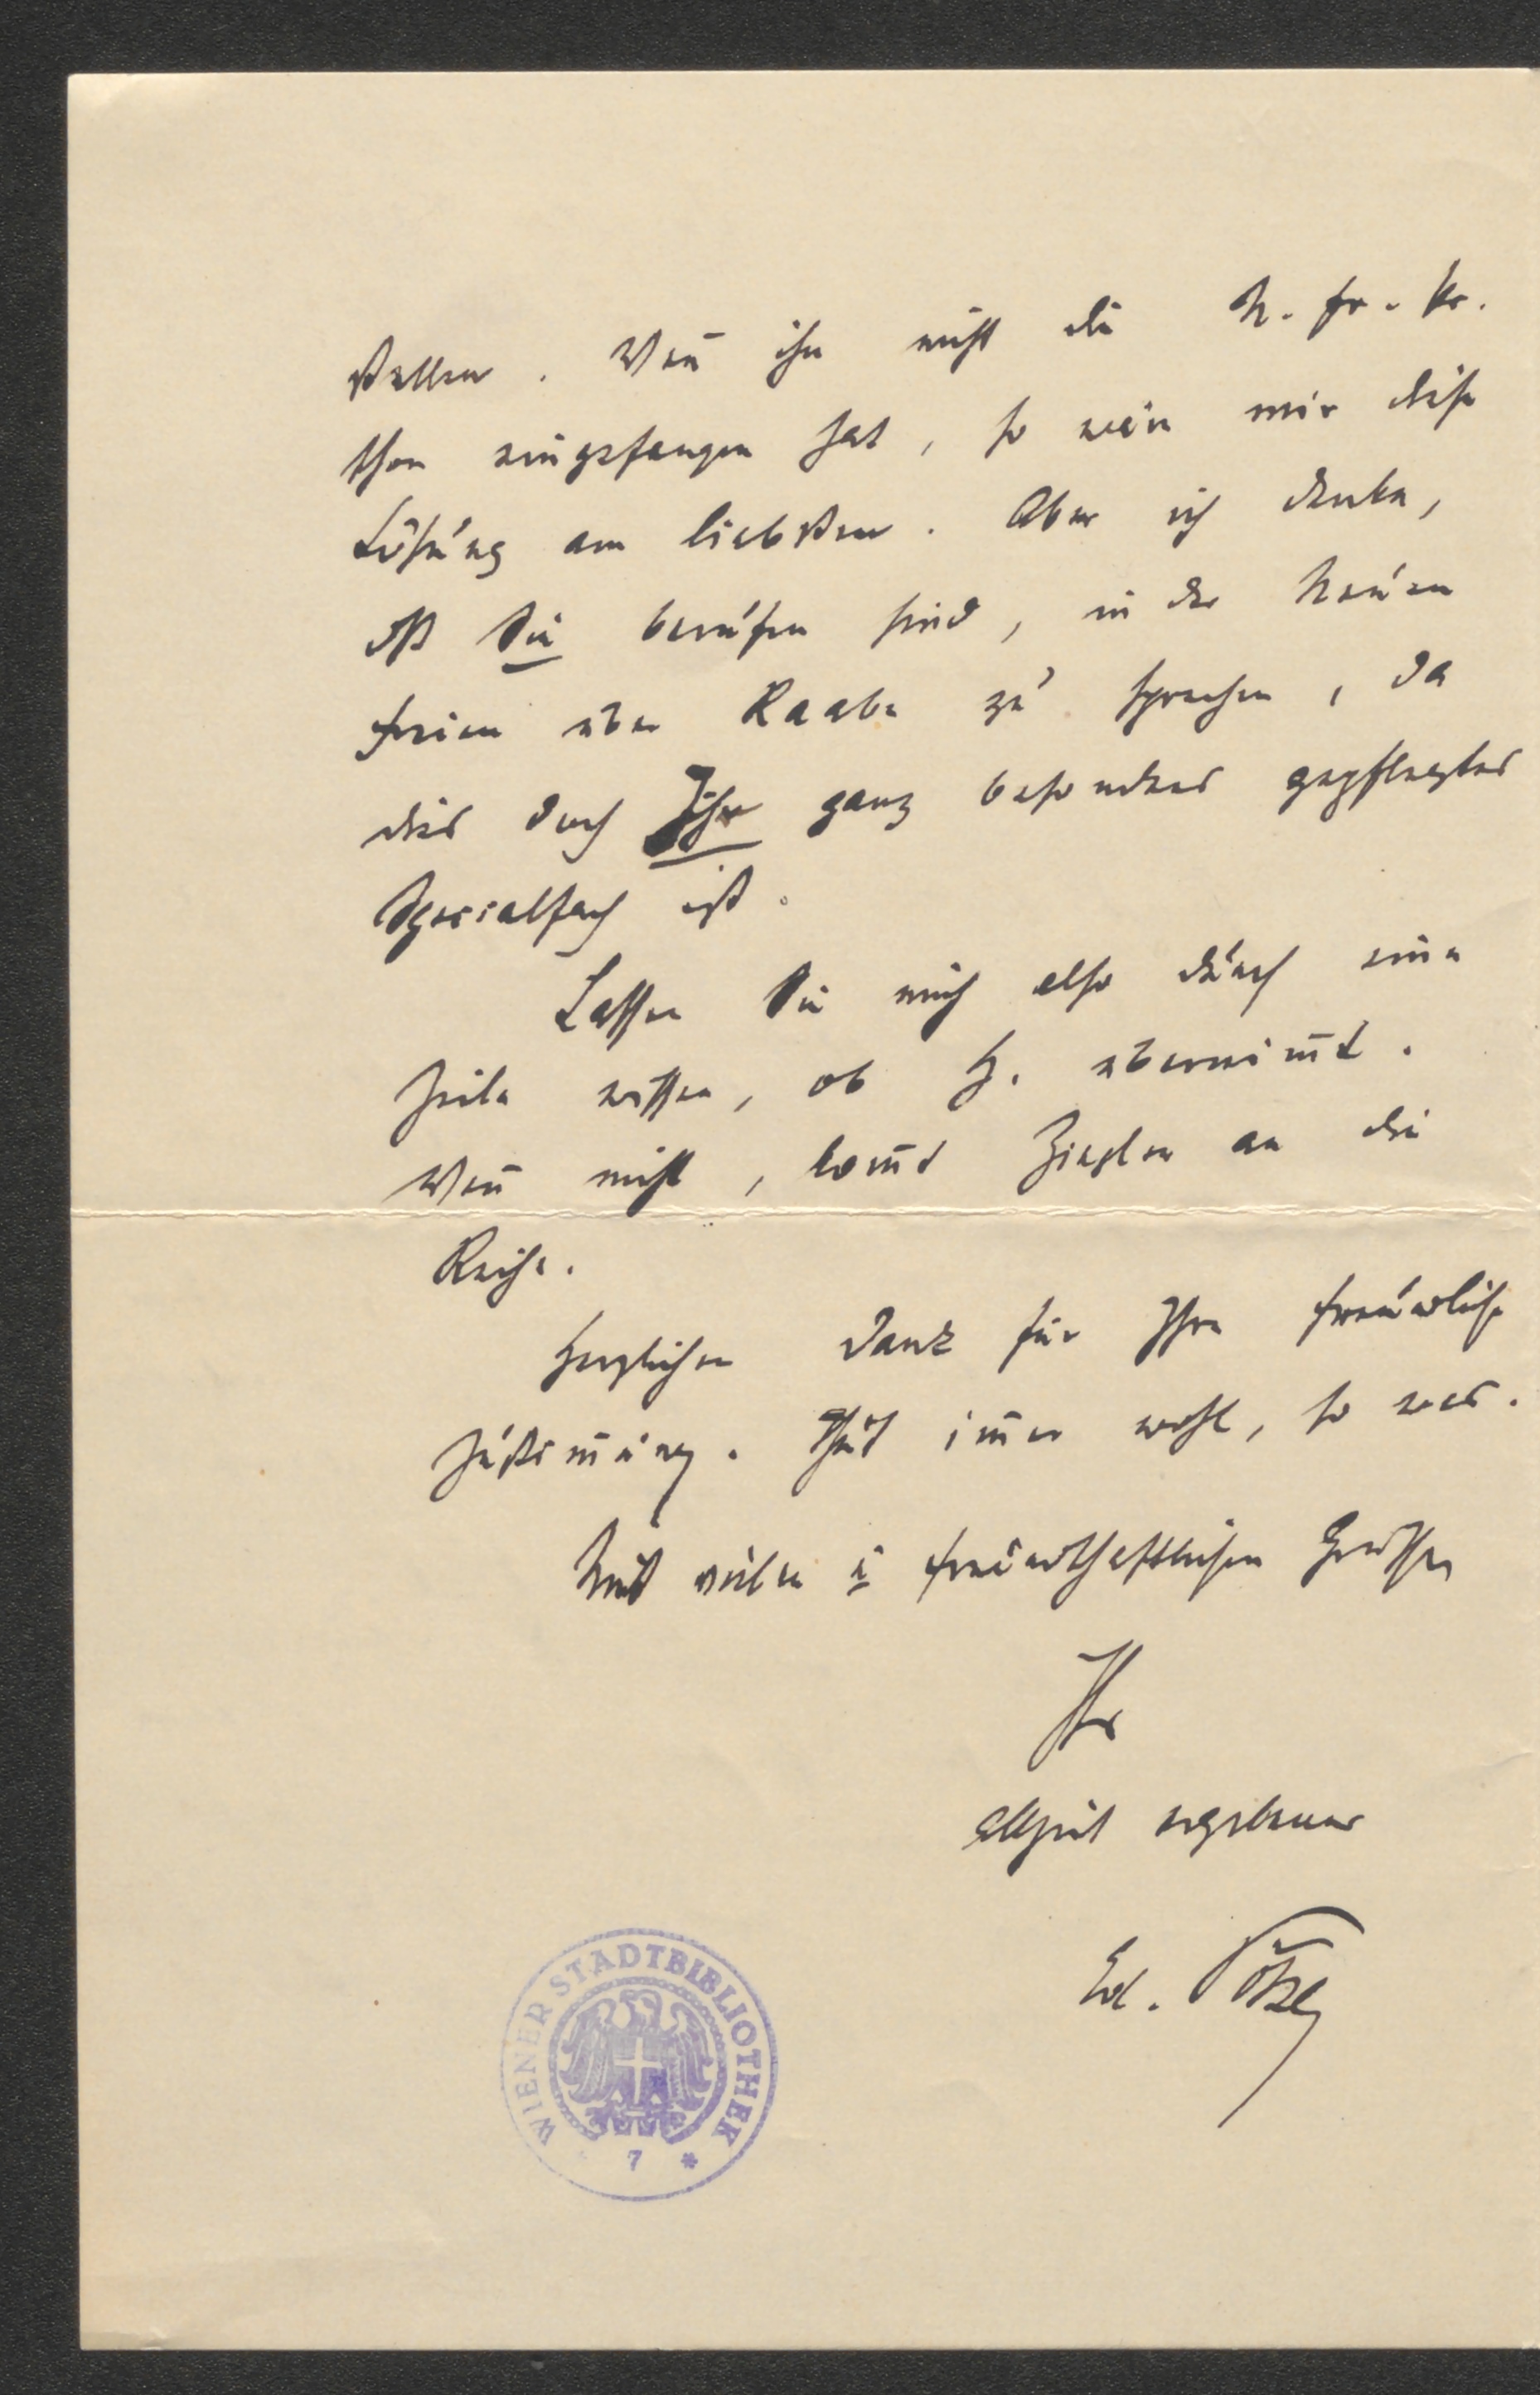 stellen. Wen̄ ihn nicht die N. Fr. Pr.
schon eingefangen hat, so wäre mir diese
Lösung am liebsten. Aber ich denke,
dß Sie berufen sind, in der Neuen
Freien über Raabe zu sprechen, da
dies doch Ihr ganz besonders gepflegtes
Specialfach ist.
Lassen Sie mich also durch eine
Zeile wissen, ob H. übernim̄t.
Wen̄ nicht, kom̄t Ziegler an die
Reihe.
Herzlichen Dank für Ihre freundliche
Zustim̄ung. Thut im̄er wohl, so was.
Mit vielen u freundschaftlichen Grüßen
Ihr
allzeit ergebener
Ed. Pötzl
WIENER STADTBIBLIOTHEK
* 7 *